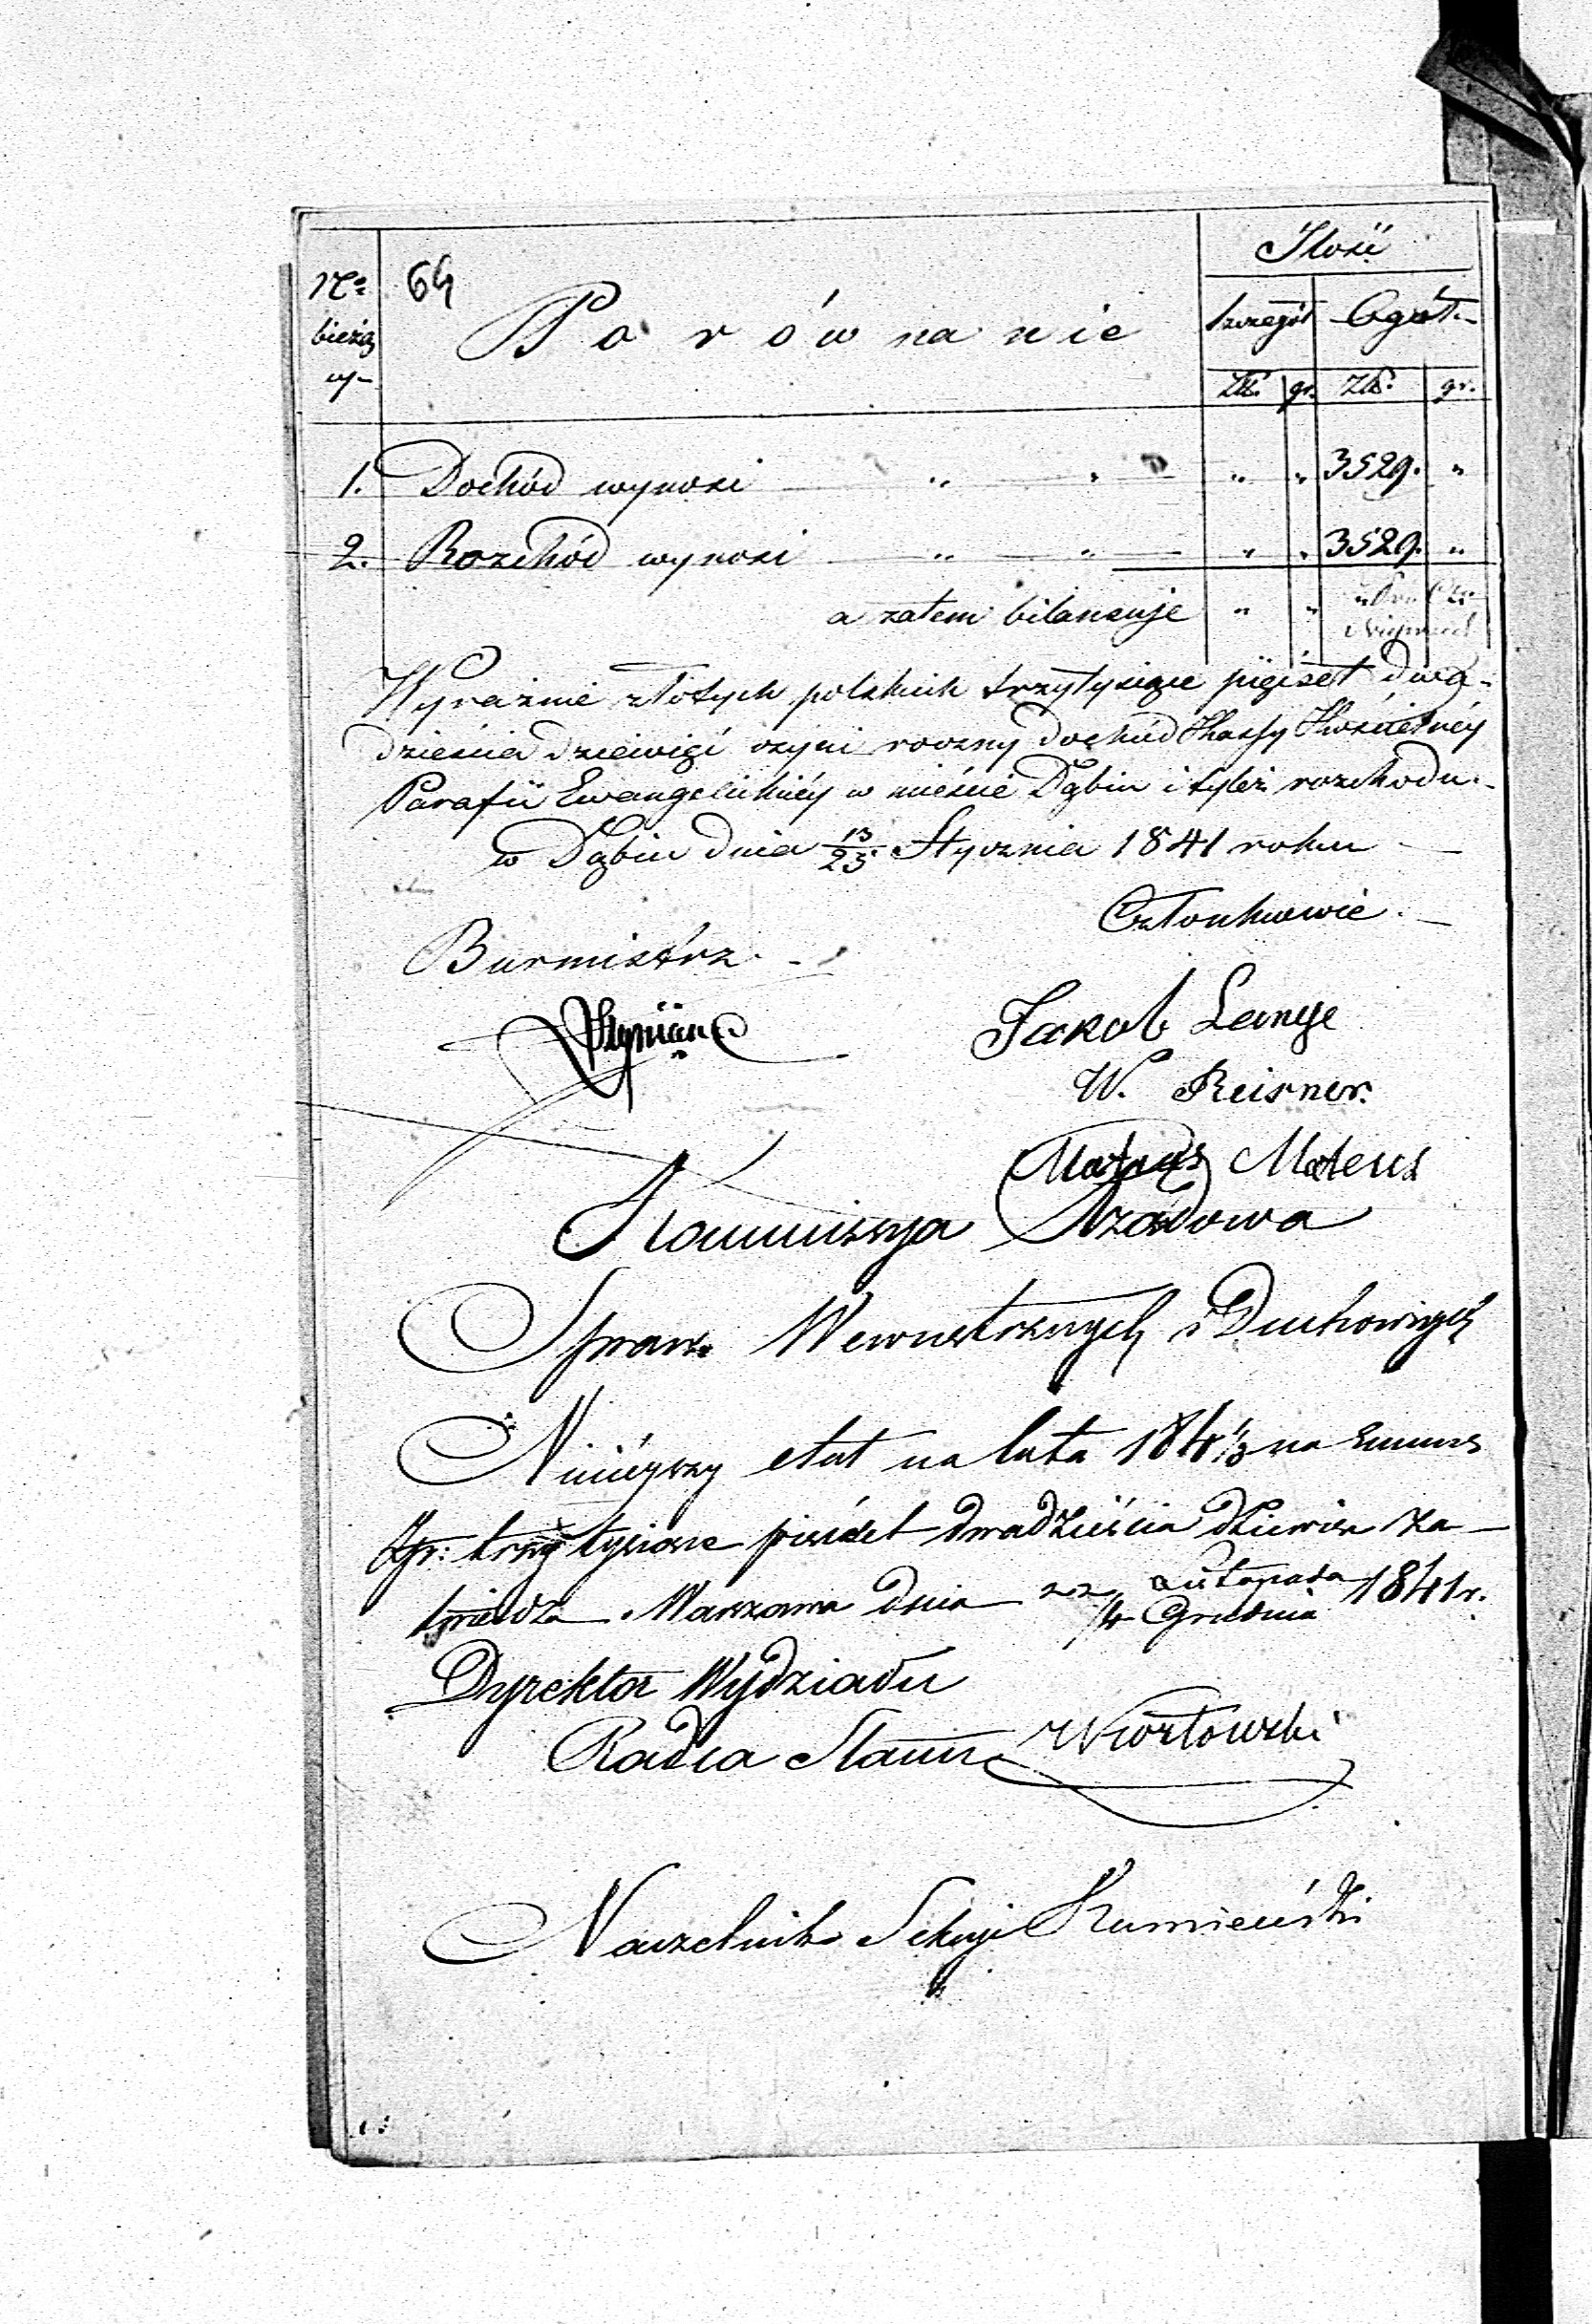 Ilość
No bieżący
64
Porównanie
szczegół Ogół
Złt. gr. Złt. gr.
1. Dochód wynosi " " " " 3529. "
2. Rozchód wynosi " " " " 3529. "
a zatem bilansuje " "
Wyraźnie złotych polskich trzytysiące pięćset dwa-
dzieścia dziewięć czyni roczny dochód Kassy Kościelnéy
Parafii Ewangelickiéy w mieście Dąbiu i tyleż rozchodu.
w Dąbiu dnia 13/25 Stycznia 1841 roku
Członkowie.
Burmistrz.
Jakob Lange
W. Reisner.
Mateus
Kommissya Rządowa
Spraw Wewnętrznych i Duchownych
Ninieyszy etat na lata 184 1/3 na summę
Złp: trzy tysiące pięćset dwadzieścia dziewięć za-
twierdza. Warszawa dnia 22 Listopada / 4 Grudnia 1841 r.
Dyrektor Wydziału
Radca Stanu
Naczelnik Sekcyi